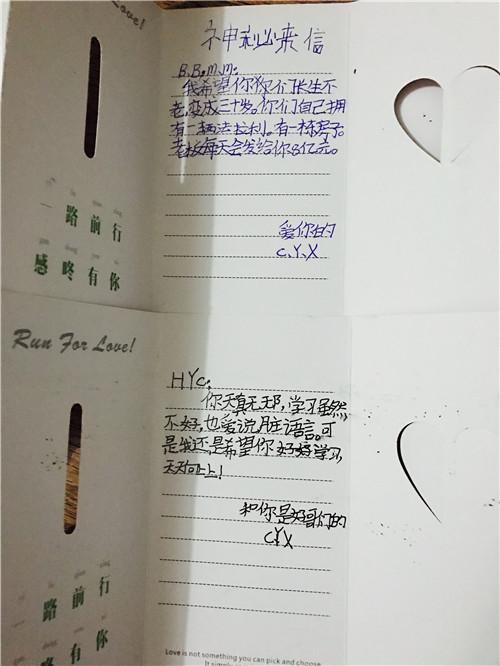 Love!
神秘来信
B.B.M.M:
我希望你你们长生不
老,变成三十岁。你们自己拥
有一辆法拉利。有一栋房子。
老板每天会发给你8亿元。
爱你的
C.Y.X
一路前行
感咚有你
Run For Love!
HYC:
你天真无邪,学习虽然
不好,也爱说脏语言。可
是我还是希望你好好学习,
天天向上!
和你是好哥们的
CYX
路前行
咚有你
Love is not something you can pick and choose
It simply